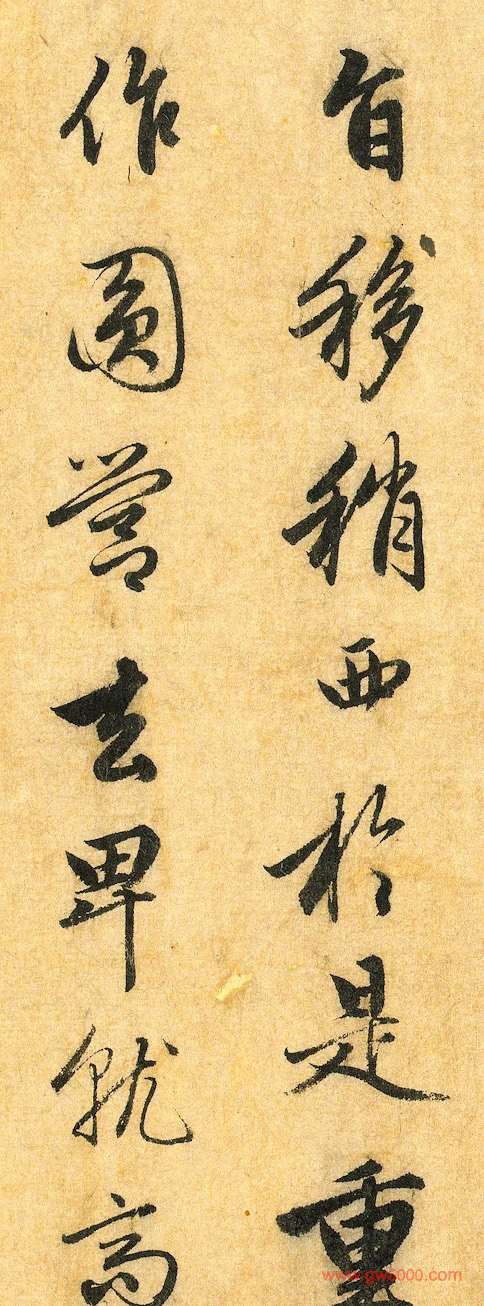 旨移稍西於是重
作圓營去卑就高
www.gw5000.com